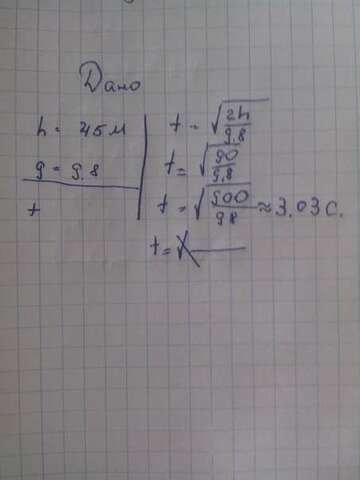 Дано
h = 45м
g = 9,8
t
t = √2h/9,8
t = √90/9,8
t = √900/98 ≈ 3,03 с.
t = √